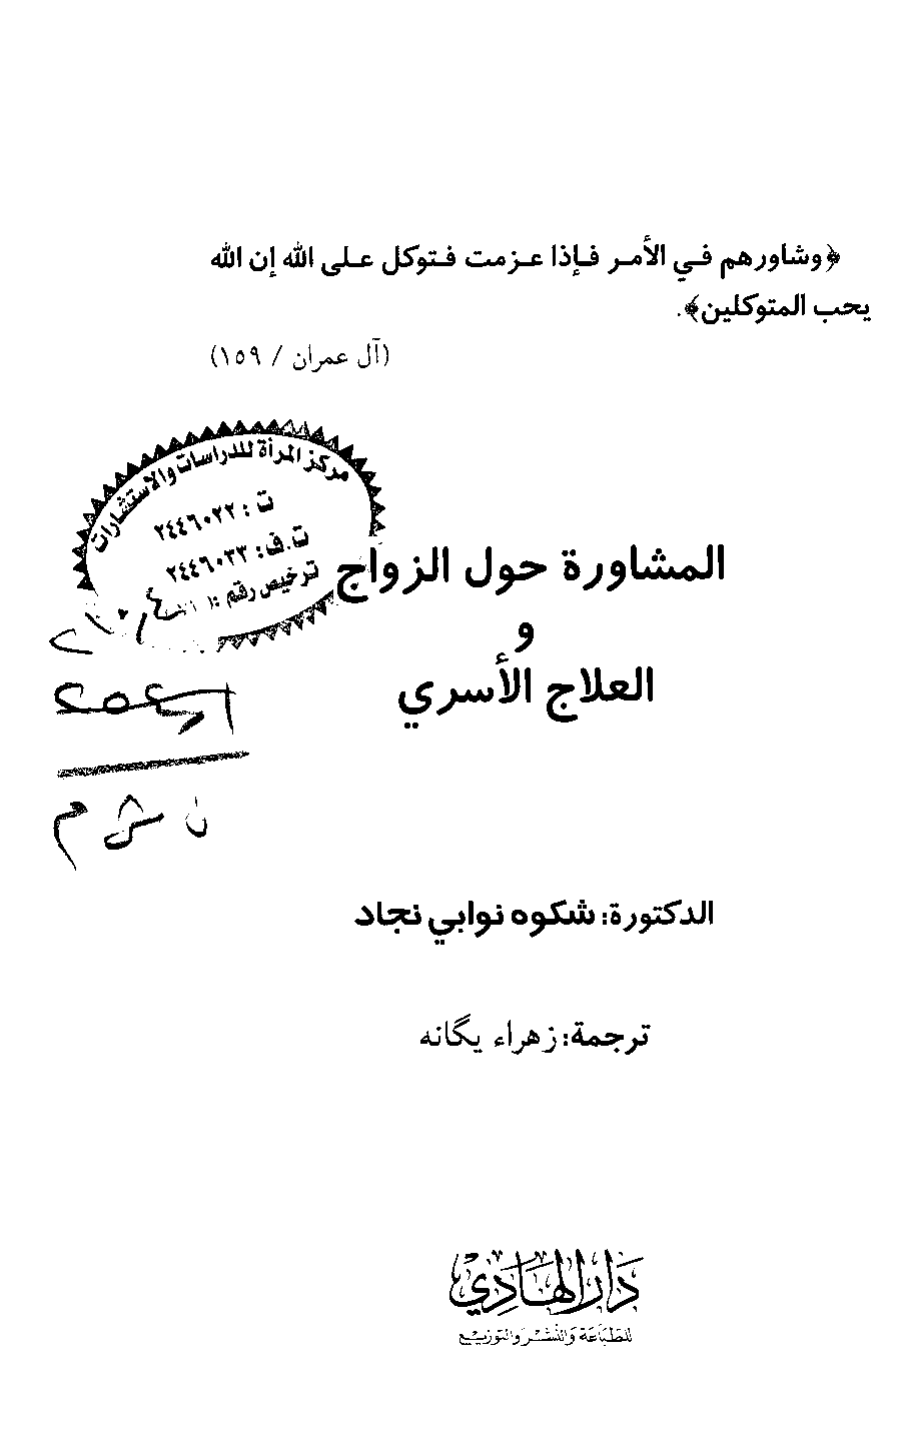 ﴿وشاورهم في الأمر فإذا عزمت فتوكل على الله إن الله
يحب المتوكلين﴾.
(آل عمران / ١٥٩)
مركز المرأة للدراسات والاستشارات
ت : ٢٤٤٦٠٢٢
ت.ف: ٢٤٤٦٠٣٣
ترخيص رقم :
المشاورة حول الزواج
و
العلاج الأسري
ن ش م
الدكتورة: شكوه نوابي نجاد
ترجمة: زهراء يگانه
دَار الهَادِي
للطبَاعَة وَالنشْر وَالتوزيع